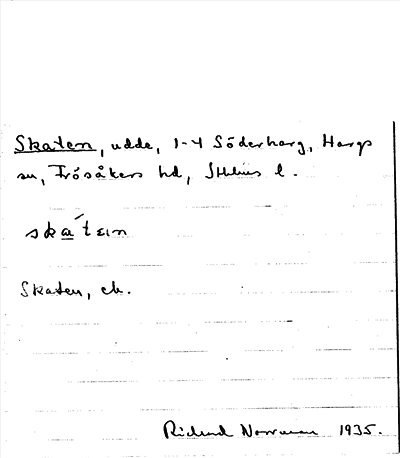 Skaten, udde, 1-4 Söderharg, Hargs
sn, Frösåkers hd, Sthlms l.
skatɛn
Skaten, ek.
Richard Norrman 1935.